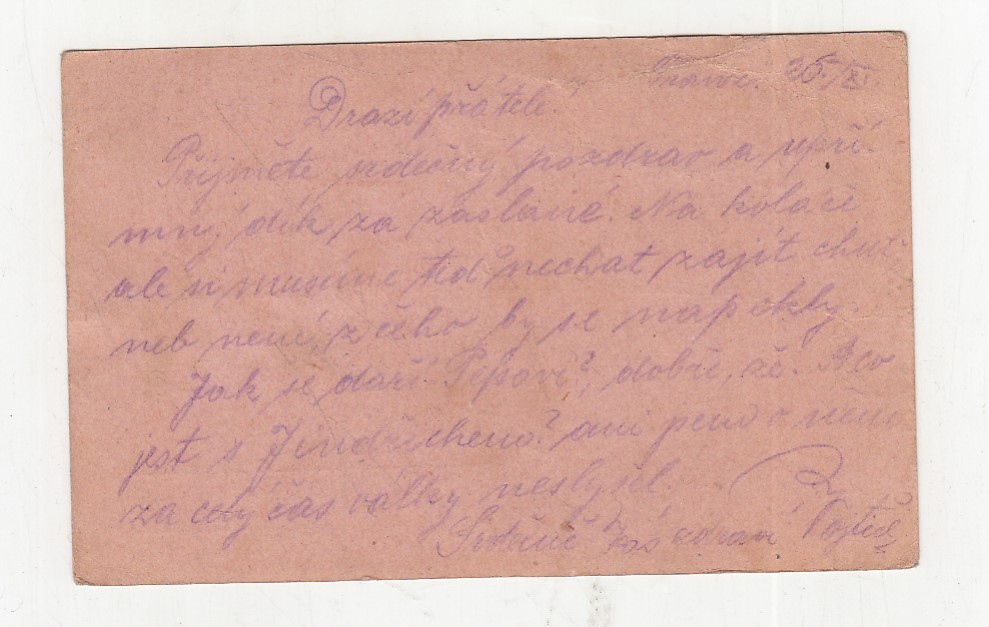 26./XI.
Drazí přátele.
Přijměte srdečný pozdrav a upří-
mný dík za zaslané. Na koláče
ale si musíme teď nechat zajít chuť
neb není z čeho by se napekly.
Jak se daří Pepovi?, dobře, že. A co
jest s Jindřichem? ani pěno o něm
za celý čas války neslyšel.
Srdečně Vás zdraví Vojtěch